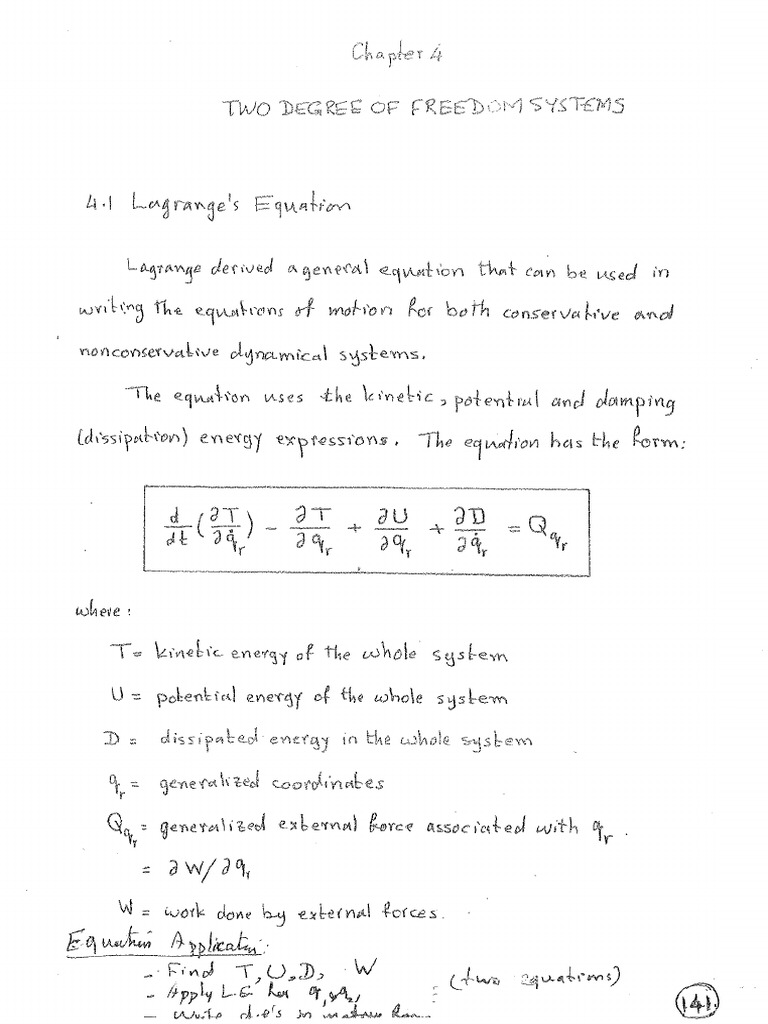 Chapter 4
TWO DEGREE OF FREEDOM SYSTEMS
4.1 Lagrange's Equation
Lagrange derived a general equation that can be used in
writing the equations of motion for both conservative and
nonconservative dynamical systems.
The equation uses the kinetic, potential and damping
(dissipation) energy expressions. The equation has the form:
d/dt (∂T/∂q̇r) - ∂T/∂qr + ∂U/∂qr + ∂D/∂q̇r = Qqr
where:
T = kinetic energy of the whole system
U = potential energy of the whole system
D = dissipated energy in the whole system
qr = generalized coordinates
Qqr = generalized external force associated with qr.
= ∂W/∂qr
W = work done by external forces.
Equation Application:
- Find T, U, D, W
- Apply L.E for q1, q2, (two equations)
- Write d.e's in
141